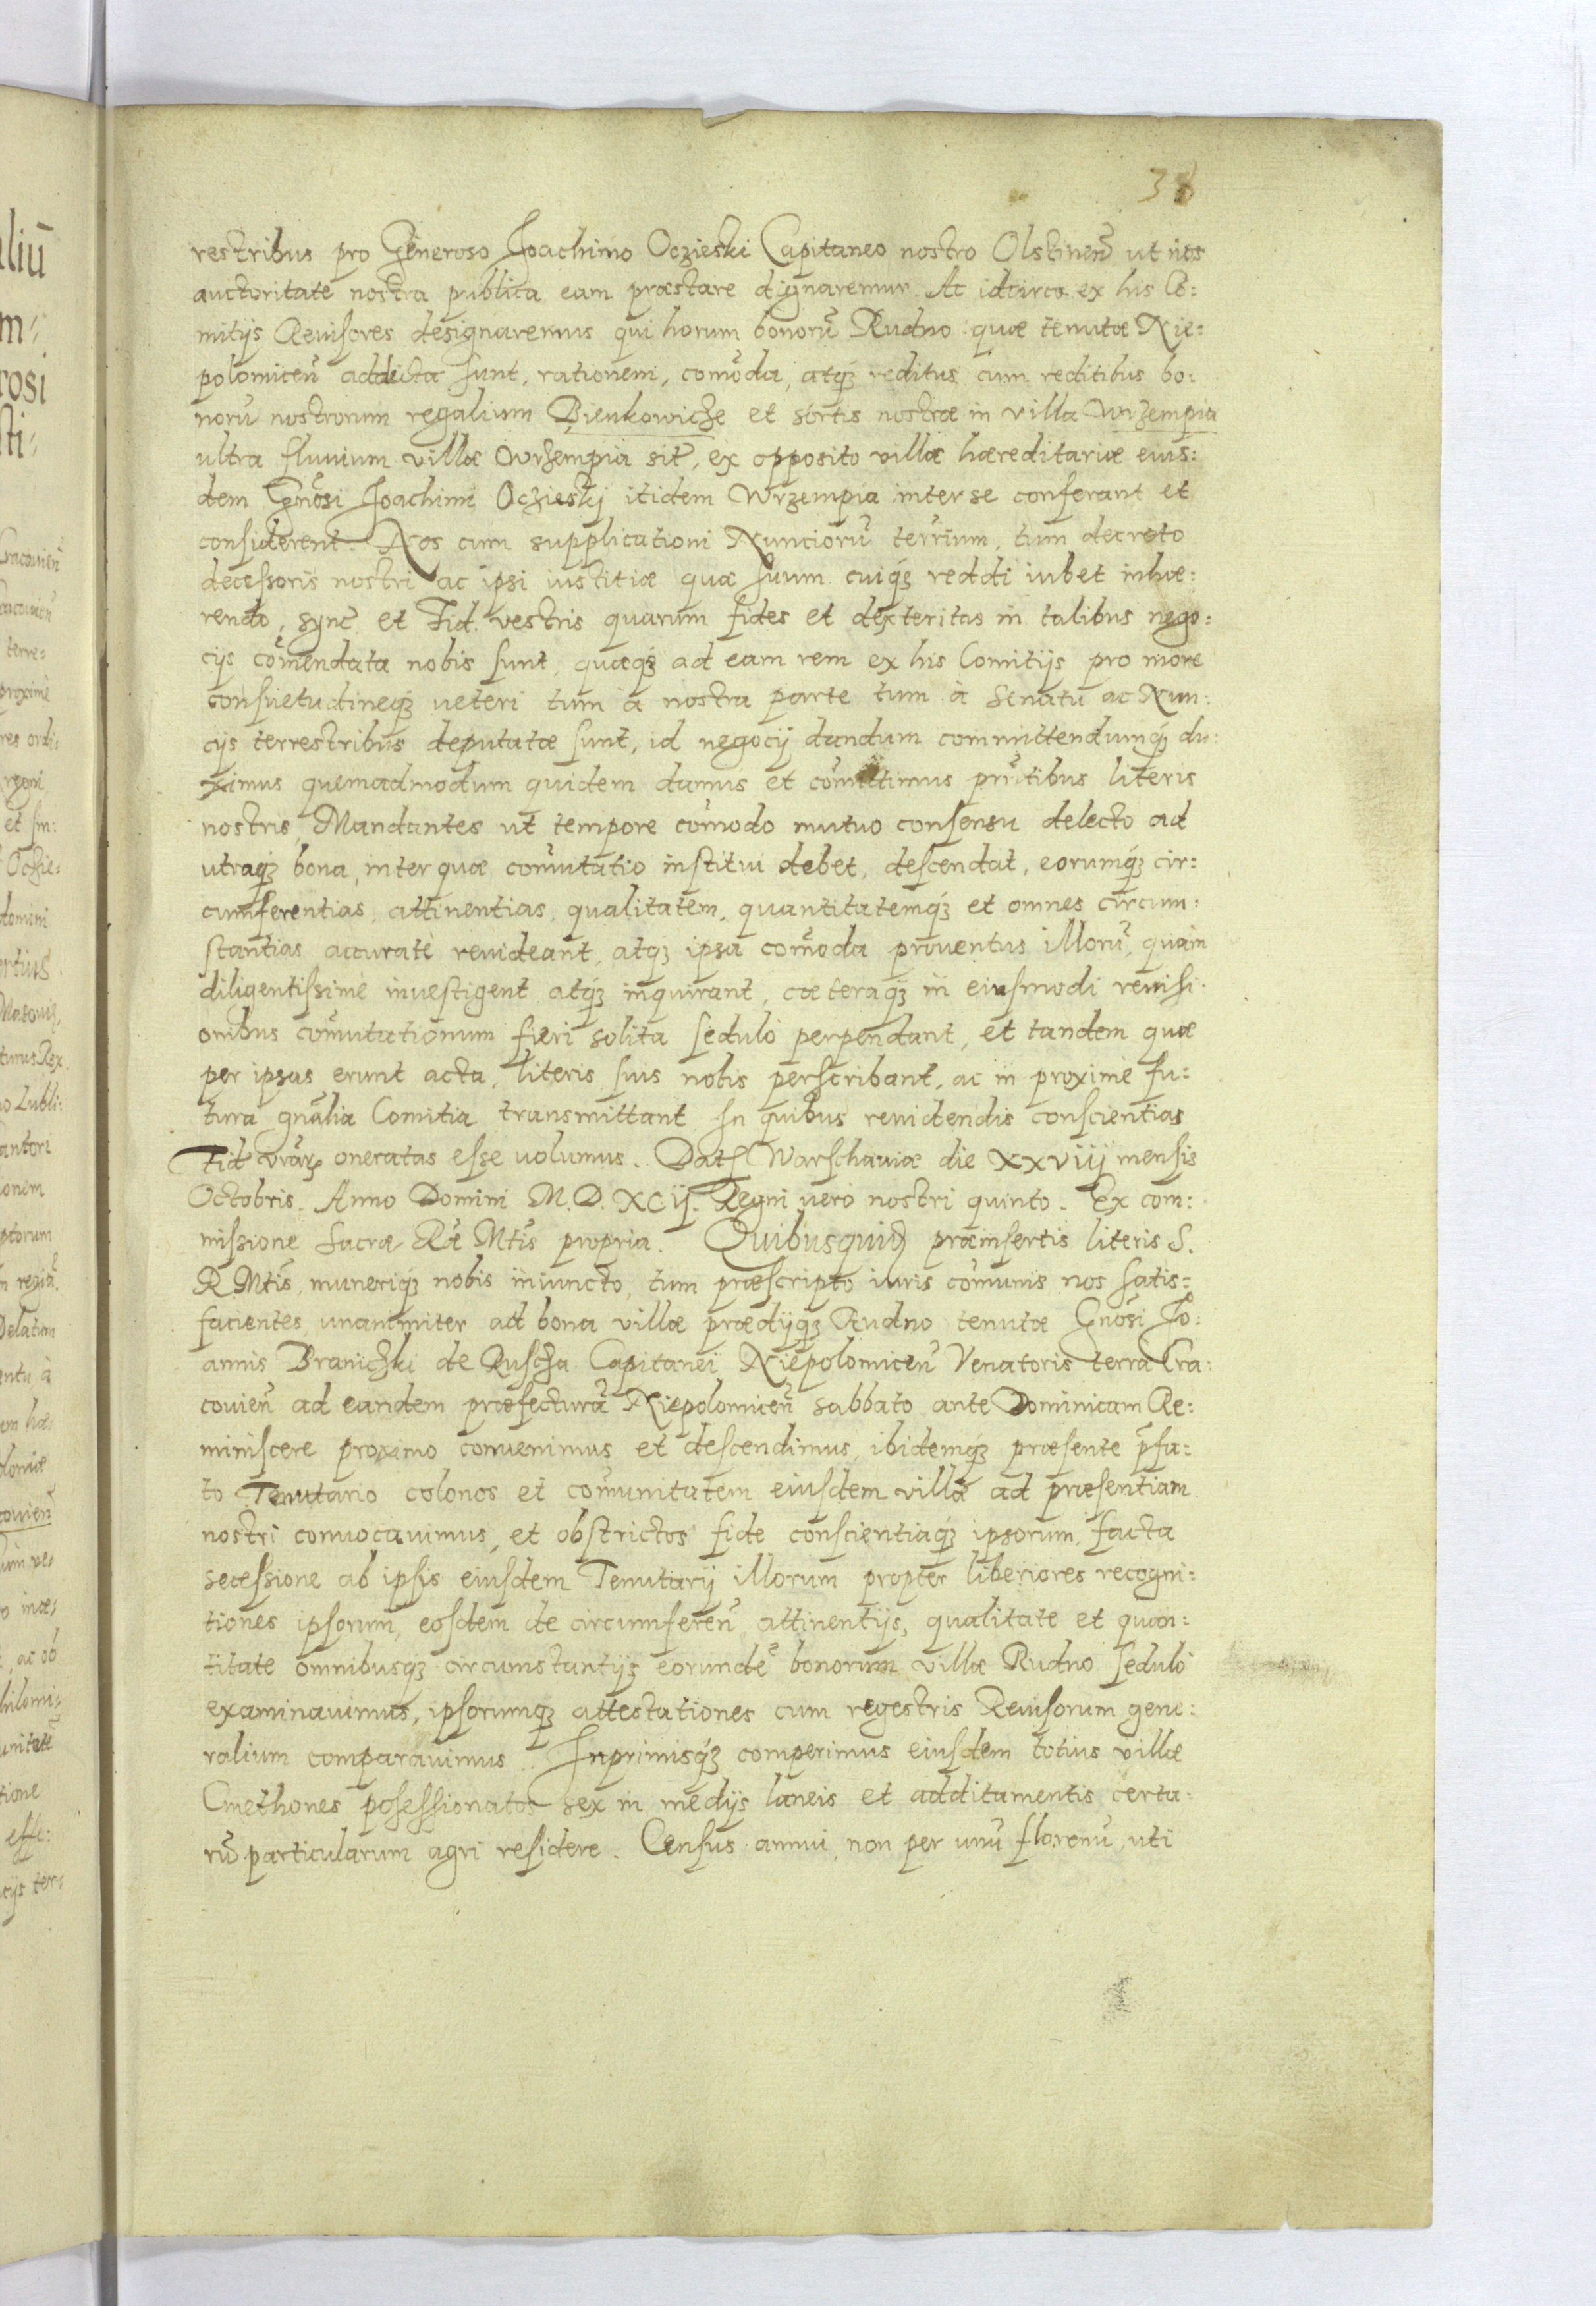 38
restribus pro Generoso Joachimo Oczieski Capitaneo nostro Olstinen̄ ut nos
auctoritate nostra publica eam præstare dignaremur. Ac idcirco ex his Co:
mitijs Reuisores designaremus qui horum bonorū Rudno quæ tenutæ Nie:
polomicen̄ addicta sunt, rationem, com̄oda, atq́ꝫ reditus cum reditibus bo:
norū nostrorum regalium Bienkowicze et sortis nostræ in villa Wrzempia
ultra fluuium villæ Wrzempia sitæ, ex opposito villæ hæreditariæ eius:
dem Gn̄osi Joachimi Oczieskj itidem Wrzempia inter se conferant et
considerent. Nos cum supplicationi Nunciorū terr̄ium, tum decreto
decessoris nostri ac ipsi iustitiæ quæ suum cuiq́ꝫ reddi iubet inhæ:
rendo, sync̄ et Fid. vestris quarum fides et dexteritas in talibus nego:
cijs com̄endata nobis sunt, quæq́ꝫ ad eam rem ex his Comitijs pro more
consuetudineq́ꝫ ueteri tum à nostra parte tum à Senatu ac Nun:
cijs terrestribus deputatæ sunt, id negocij dandum committendumq́ꝫ du:
ximus quemadmodum quidem damus et com̄ittimus pn̄tibus literis
nostris, Mandantes ut tempore com̄odo mutuo consensu delecto ad
utraq́ꝫ bona, inter quæ com̄utatio institui debet, descendat, eorumq́ꝫ cir:
cumferentias, attinentias, qualitatem, quantitatemq́ꝫ et omnes circum:
stantias accuratè reuideant, atqꝫ ipsa com̄oda prouentus illorū, quàm
diligentissimè inuestigent atq́ꝫ inquirant, cæteraq́ꝫ in eiusmodi reuisi:
onibus com̄utationum fieri solita sedulò perpendant, et tandem quæ
per ipsas erunt acta, literis suis nobis perscribant, ac in proximè fu:
tura gn̄alia Comitia transmittant. In quibus reuidendis conscientias
Fid. vrāꝝ oneratas esse uolumus. Datꝭ Warschauiæ die XXVIIJ mensis
Octobris. Anno Domini M.D.XCIJ. Regni uero nostri quinto. Ex com:
missione Sacræ Ræ Mtis propria. Quibusquidꝫ præinsertis literis S.
R. Mtis, muneriq́ꝫ nobis iniuncto, tum præscripto iuris com̄unis nos satis:
facientes, unanimiter ad bona villæ prædijqꝫ Rudno tenutæ Gn̄osi Jo:
annis Braniczki de Ruscza Capitanei Niepolomicen̄ Venatoris terræ Cra:
couien̄ ad eandem præfecturā Niepolomicen̄ sabbato ante Dominicam Re:
miniscere proximo conuenimus et descendimus, ibidemq́ꝫ præsente p̄fa:
to Tenutario colonos et com̄unitatem eiusdem villæ ad præsentiam
nostri conuocauimus, et obstrictos fide conscientiaq́ꝫ ipsorum, facta
secessione ab ipsis eiusdem Tenutarij illorum propter liberiores recogni:
tiones ipsorum, eosdem de circumferen̄ attinentijs, qualitate et quan:
titate omnibusqꝫ circumstantijs eorundē bonorum villæ Rudno sedulò
examinauimus, ipsorumqꝫ attestationes cum regestris Reuisorum gene:
ralium comparauimus. Inprimisq́ꝫ comperimus eiusdem totius villæ
Cmethones posessionatos sex in medijs laneis et additamentis certa:
rū particularum agri residere. Census annui, non per unū florenū, uti